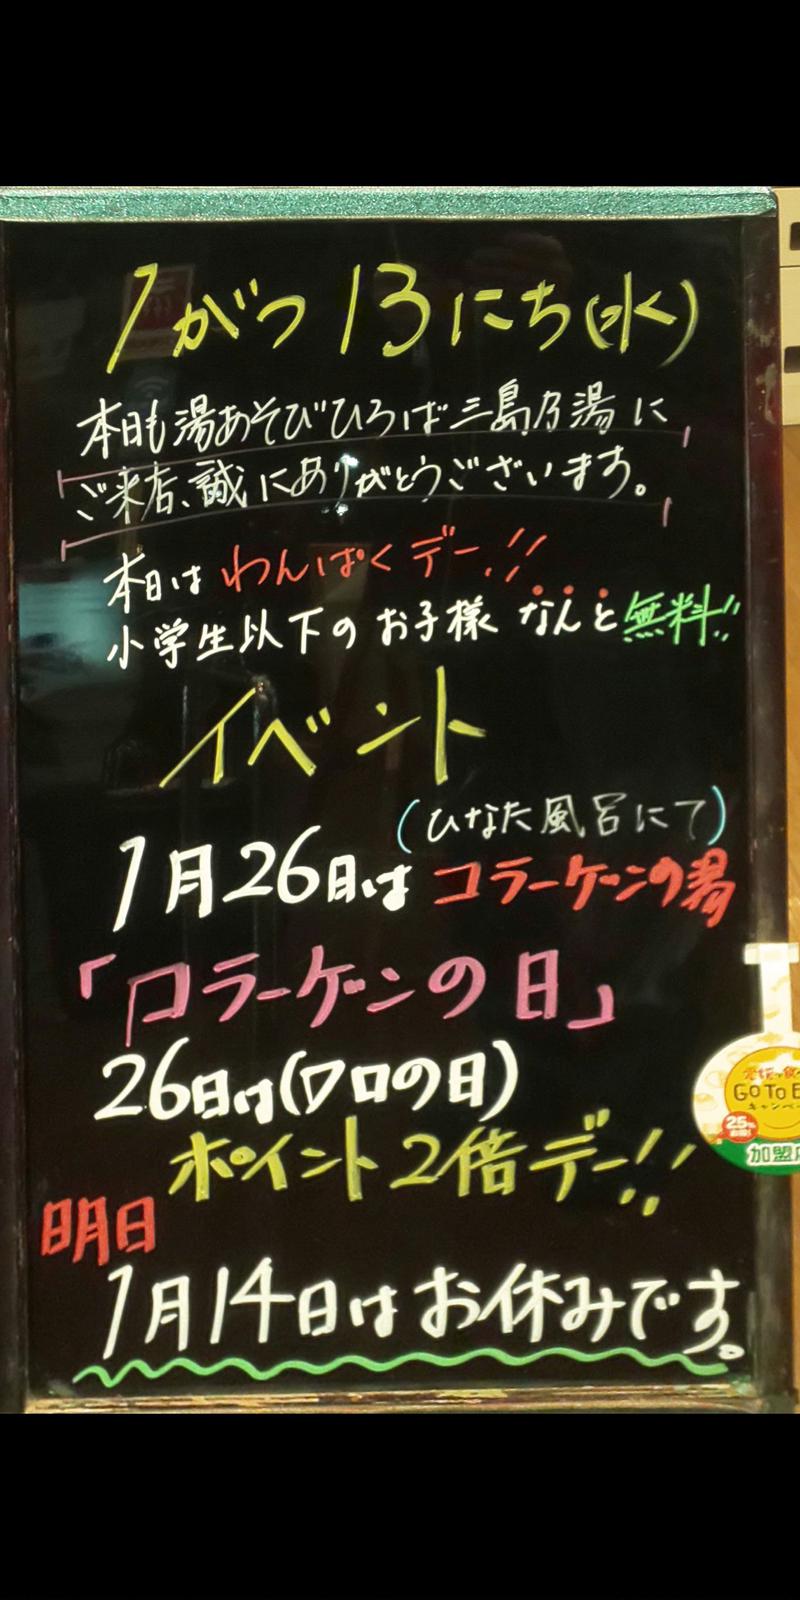 1がつ13にち(水)
本日も湯あそびひろば三島乃湯に
ご来店、誠にありがとうございます。
本日は わんぱくデー!!
小学生以下のお子様 なんと無料!!
イベント
(ひなた風呂にて)
1月26日は コラーゲンの湯
「コラーゲンの日」
26日は(フロの日)
ポイント2倍デー!!
明日
1月14日はお休みです。
GO TO E
キャンペ
25%
加盟店